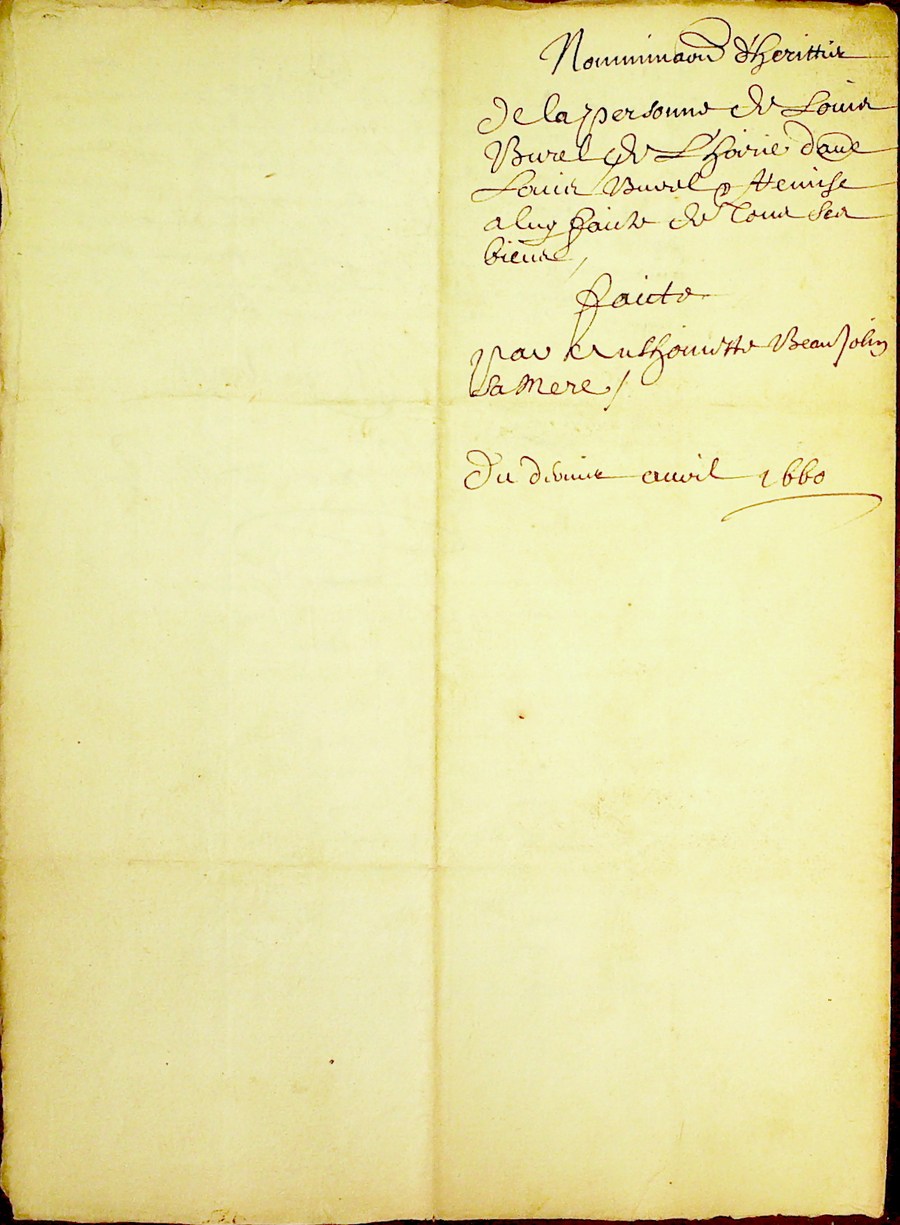 Nominnaon d'herittier
de la personne de Louis
Burel de L'hoirie d'aue
Louis Burel & Remise
a luy faicte de Tous Ses
biens,
faicte
par Anthoinette Beaujolin
Sa Mere /
Du avril 1660